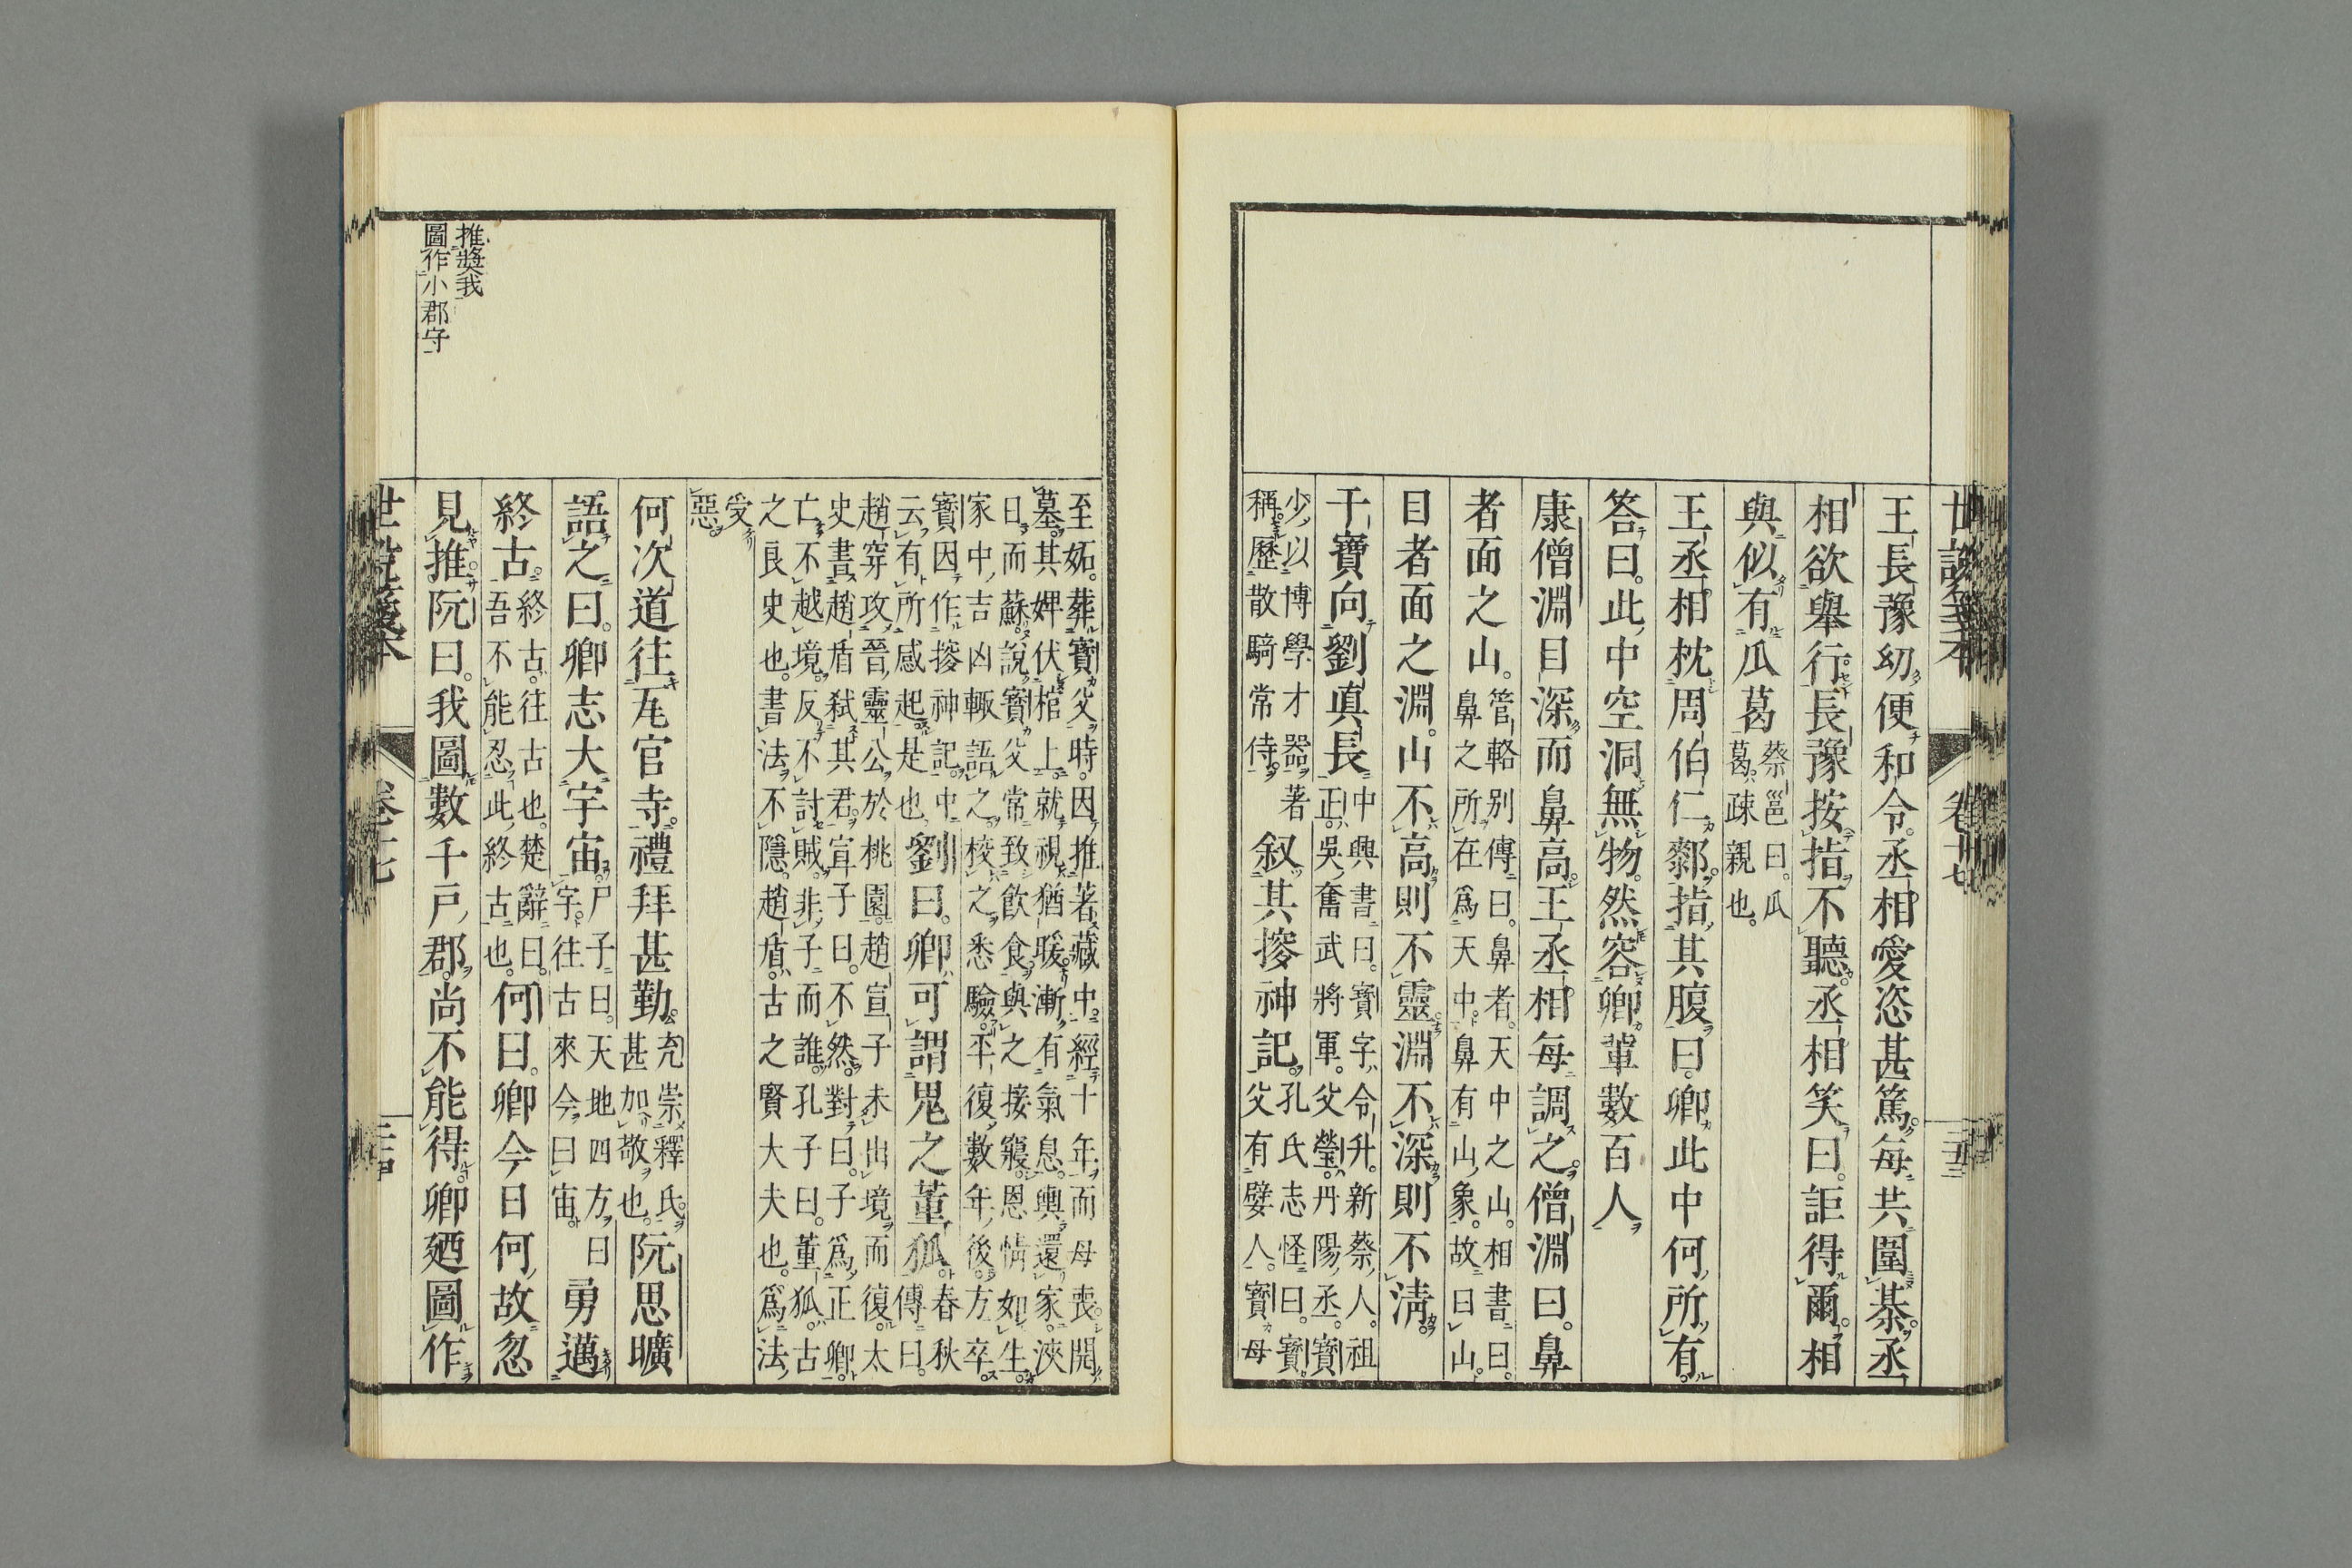 世說箋本
卷十七
王長豫幼便和令丞相愛恣甚篤每共圍棊丞
相欲舉行長豫按指不聽丞相笑曰詎得爾相
與似有瓜葛
蔡邕曰瓜
葛疎親也
王丞相枕周伯仁䣛指其腹曰卿此中何所有
答曰此中空洞無物然容卿輩數百人
康僧淵目深而鼻高王丞相每調之僧淵曰鼻
者面之山
管輅别傳曰鼻者天中之山相書曰
鼻之所在爲天中鼻有山象故曰山
目者面之淵山不高則不靈淵不深則不淸
干寶向劉眞長
中興書曰寶字令升新蔡人祖
正吳奮武將軍父瑩丹陽丞寶
少以博學才器著
稱歷散騎常侍
叙其搜神記
孔氏志怪曰寶
父有嬖人寶母
至妬葬寶父時因推著藏中經十年而母喪開
墓其婢伏棺上就視猶暖漸有氣息輿還家浹
日而蘇說寶父常致飮食與之接寢恩情如生
家中吉凶輙語之校之悉驗平復數年後方卒
寶因作搜神記中
云有所感起是也
劉曰卿可謂鬼之董狐
春秋
傳曰
趙穿攻晉靈公於桃園趙宣子未出境而復太
史書趙盾弑其君宣子曰不然對曰子爲正卿
亡不越境反不討賊非子而誰孔子曰董狐古
之良史也書法不隱趙盾古之賢大夫也爲法
受
惡
何次道往瓦官寺禮拜甚勤
充崇釋氏
甚加敬也
阮思曠
語之曰卿志大宇宙
尸子曰天地四方曰
宇往古來今曰宙
勇邁
終古
終古往古也楚辭曰
吾不能忍此終古也
何曰卿今日何故忽
見推阮曰我圖數千戶郡尚不能得卿廼圖作
推獎我
圖作小郡守
世說箋本
卷十七